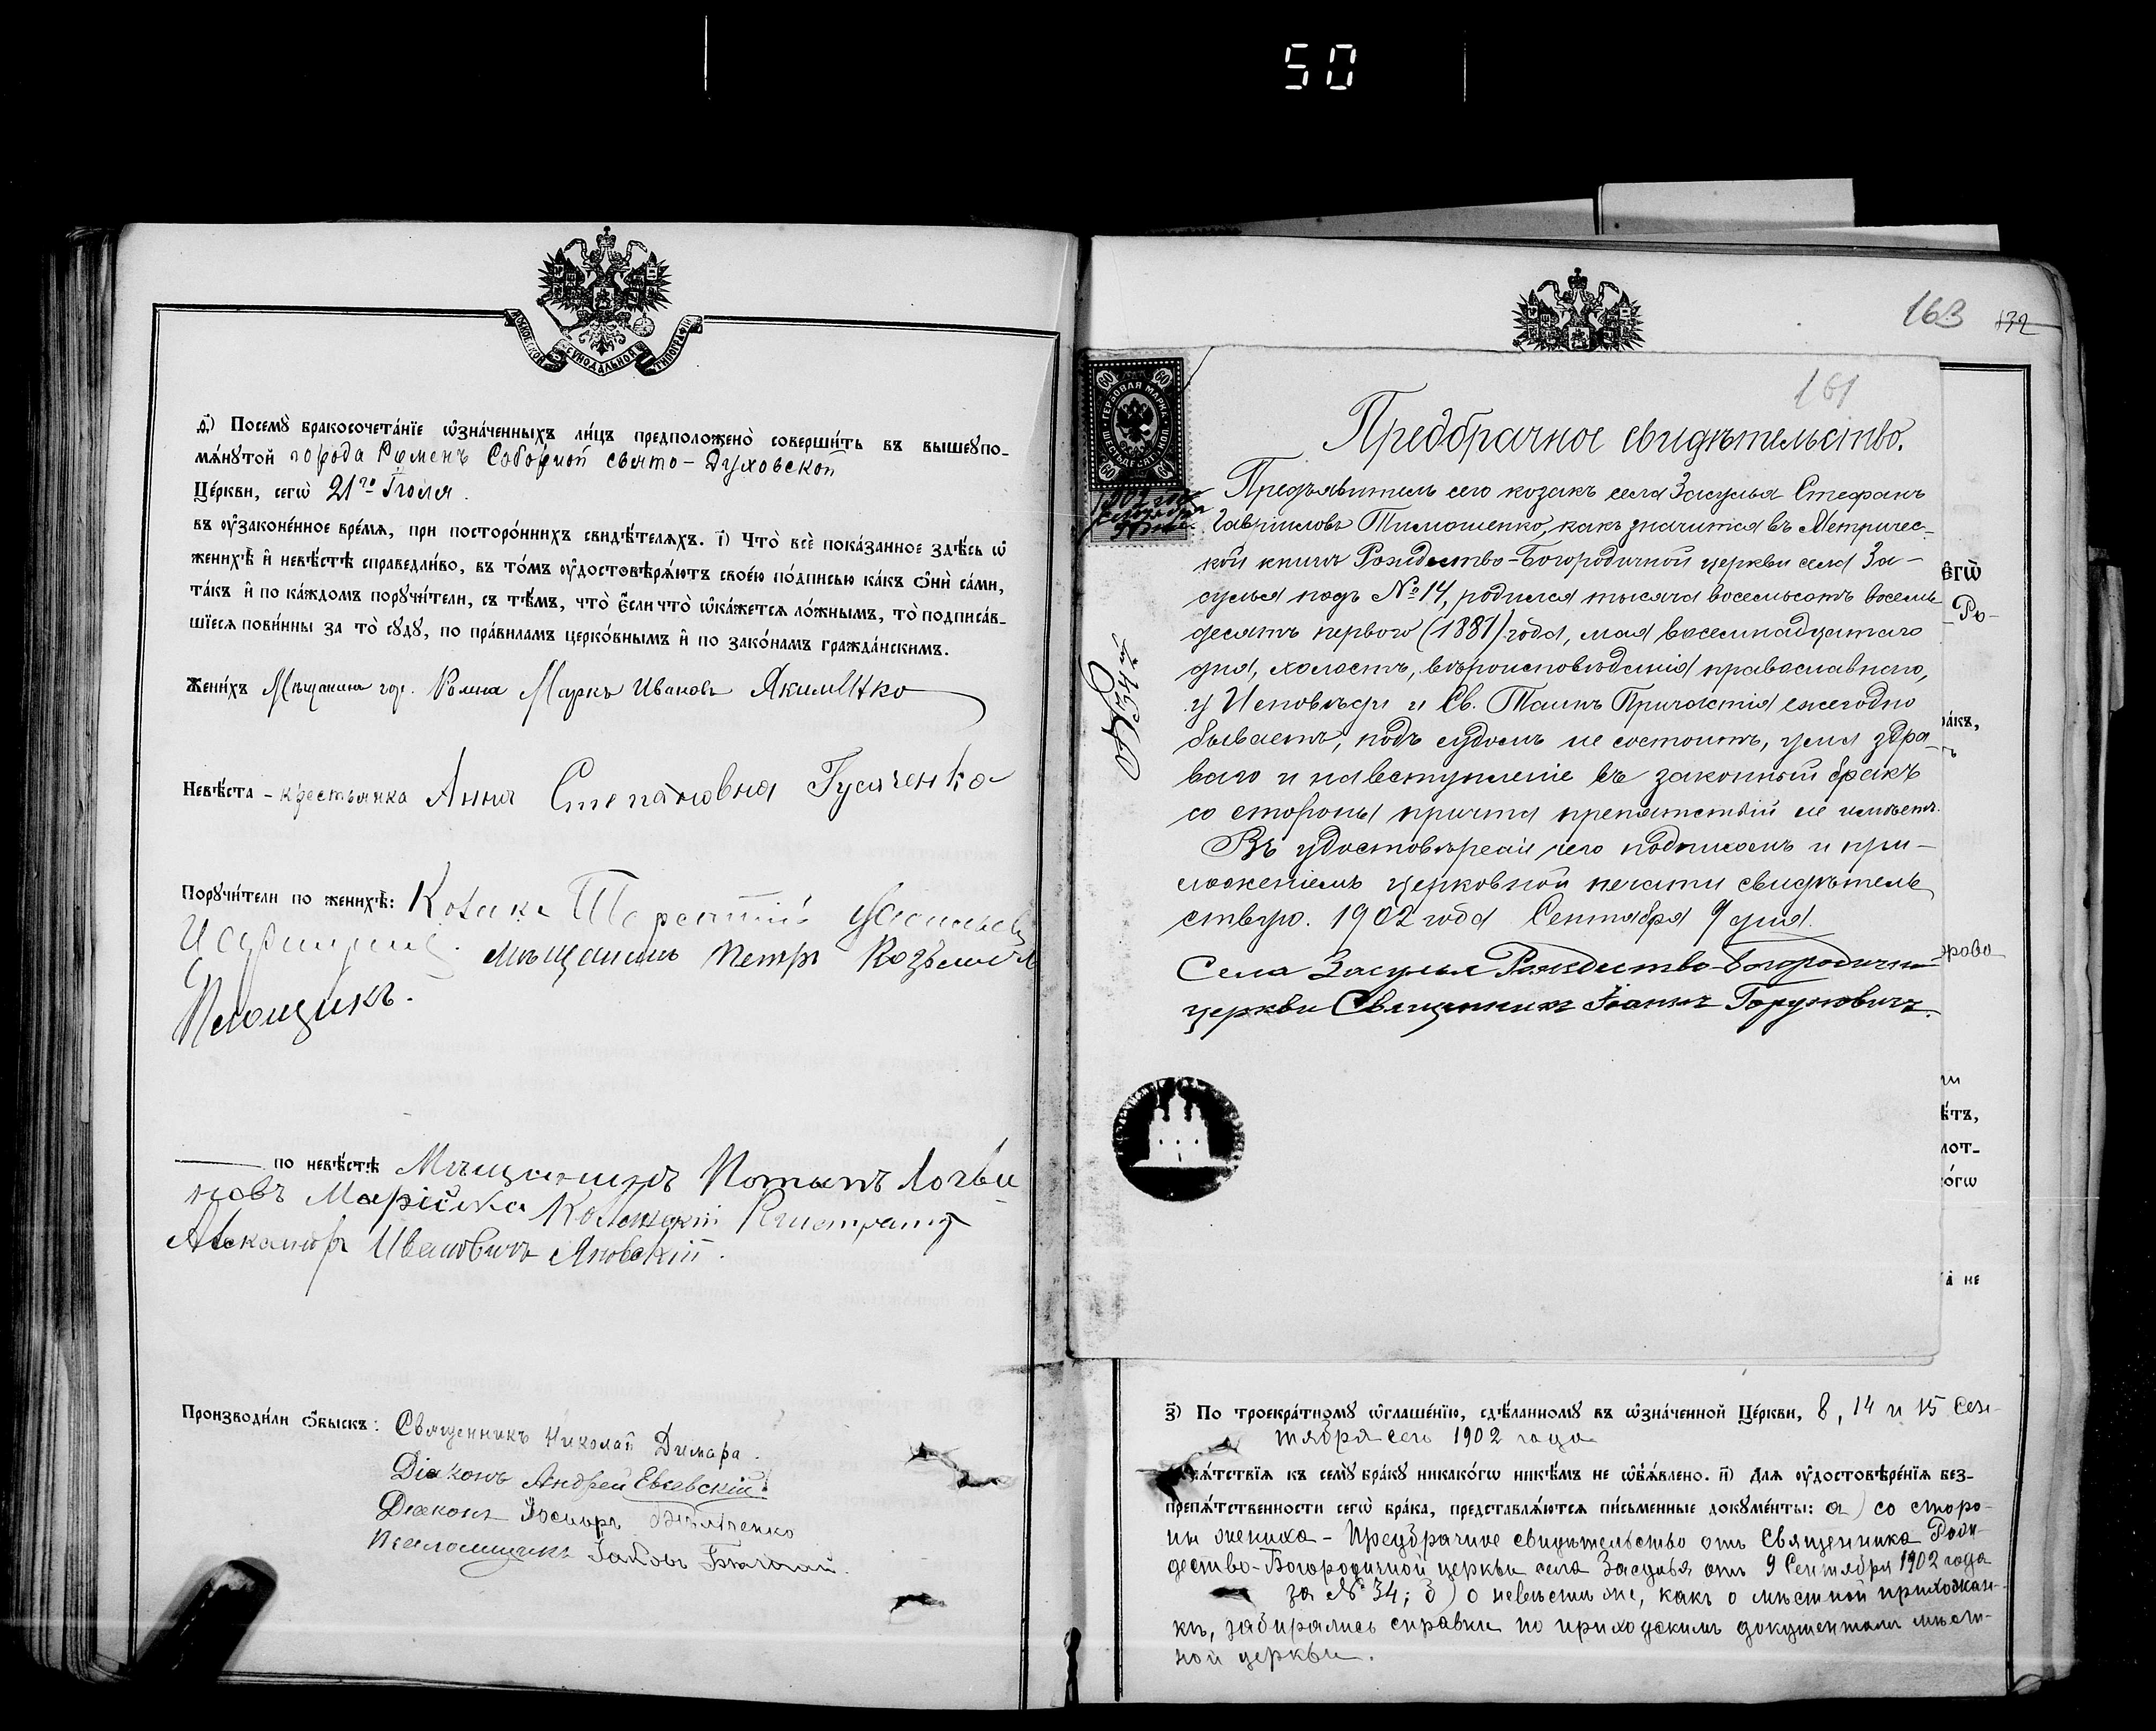 50
МОСКОВСКОЙ СѴНОДАЛЬНОЙ ТИПОГРАФІИ
д҃) Посемꙋ̀ бракосочета́нїе ѡ҆зна́ченныхъ ли́цъ предположено̀ соверши́ть въ вышеꙋпо-
мѧ́нꙋтой города Роменъ Соборной свято-Духовской
Це́ркви, сегѡ̀ 21го Іюля.
въ ᲂу҆законе́нное вре́мѧ, при посторо́ннихъ свидѣ́телѧхъ. і҃) Что̀ всѐ пока́занное здѣ́сь ѡ҆
женихѣ̀ и҆ невѣ́стѣ справедли́во, въ то́мъ ᲂу҆достовѣрѧ́ютъ свое́ю по́дписью ка́къ ѻ҆нѝ са́ми,
та́къ и҆ по ка́ждомъ порꙋчи́тели, съ тѣ́мъ, что̀ є҆́сли что̀ ѡ҆ка́жетсѧ ло́жнымъ, то̀ подписа́в-
шїесѧ пови́нны за то̀ сꙋдꙋ̀, по пра́виламъ церко́внымъ и҆ по зако́намъ гражда́нскимъ.
Жени́хъ Мѣщанинъ гор. Ромна Маркъ Ивановъ Якименко
Невѣ́ста – крестьянка Анна Степановна Гусаченко
Порꙋчи́тели по женихѣ̀: Козакъ
мѣщанинъ Петръ Козьмичъ
Площикъ.
по невѣ́стѣ Мѣщанинъ Потапъ Логви-
новъ Марійка Коллежскій Регистраторъ
Александръ Ивановичъ Яновскій.
Производи́ли ѻ҆́быскъ: Священникъ Николай Димара.
Діаконъ Андрей Евсевскій.
Діаконъ Іосифъ
Псаломщикъ Іаковъ
163 132
161
ГЕРБОВАЯ МАРКА
ШЕСТЬДЕСЯТЪ КОП.
60 60 60 60
1902 года
Сентября
9 дня.
№ 34й
Предбрачное свидѣтельство.
Предъявитель сего козакъ села Засулья Стефанъ
Гавриловъ Тимошенко, какъ значится въ Метричес-
кой книгѣ Рождество-Богородичной церкви села За-
сулья подъ № 14, родился тысяча восемьсотъ восемь-
десятъ перваго (1881) года, мая восемнадцатаго
дня, холостъ, вѣроисповѣданія православнаго,
у Исповѣди и Св. Таинъ Причастія ежегодно
бываетъ, подъ судомъ не состоитъ, ума здра-
ваго и на вступленіе въ законный бракъ
со стороны причта препятствій не имѣетъ.
Въ удостовѣреніи чего подписомъ и при-
ложеніемъ церковной печати свидѣтель
ствую. 1902 года Сентября 9 дня.
Села Засулья Рождество-Богородичн.
церкви Священникъ Іоаннъ Горуновичъ.
є҆гѡ̀
Ро-
ра́къ,
орово
ѣ́тъ,
лот-
о́гѡ
а̀ не
з҃) По троекра́тномꙋ ѡ҆глаше́нїю, сдѣ́ланномꙋ въ ѡ҆зна́ченной Це́ркви, 8, 14 и 15 Сен-
тября сего 1902 года
ѧ́тствїѧ къ семꙋ̀ бра́кꙋ никако́гѡ никѣ́мъ не ѡ҆б̾ѧ́влено. и҃) Длѧ ᲂу҆достовѣре́нїѧ без-
препѧ́тственности сегѡ̀ бра́ка, представлѧ́ютсѧ пи́сьменные докꙋме́нты: а) со сторо-
ны жениха – Предбрачное свидѣтельство отъ Священника Рож-
дество-Богородичной церкви села Засулья отъ 9 Сентября 1902 года
за № 34; б) о невѣстѣ же, какъ о мѣстной прихожан-
кѣ, забирались справки по приходскимъ документамъ мѣст-
ной церкви.